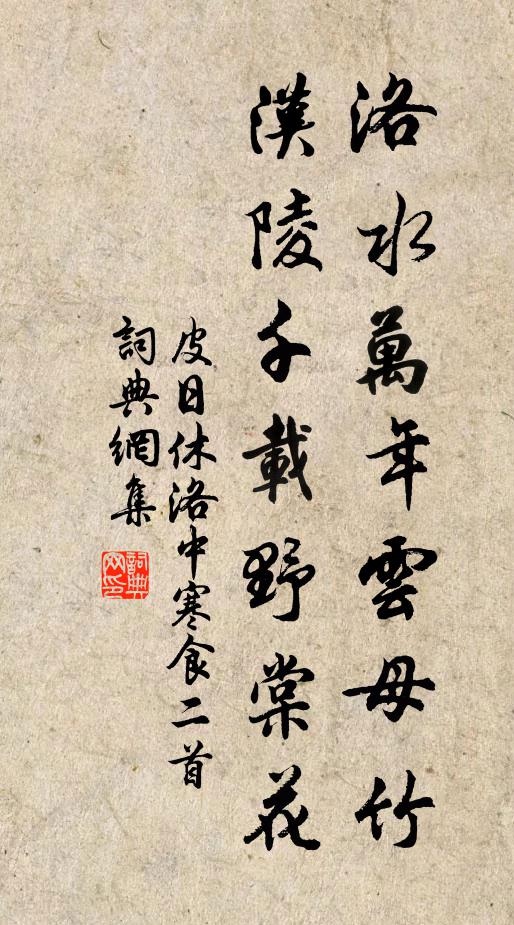 洛水萬年雲母竹
漢陵千載野棠花
皮日休洛中寒食二首
詞典網集
詞典网印